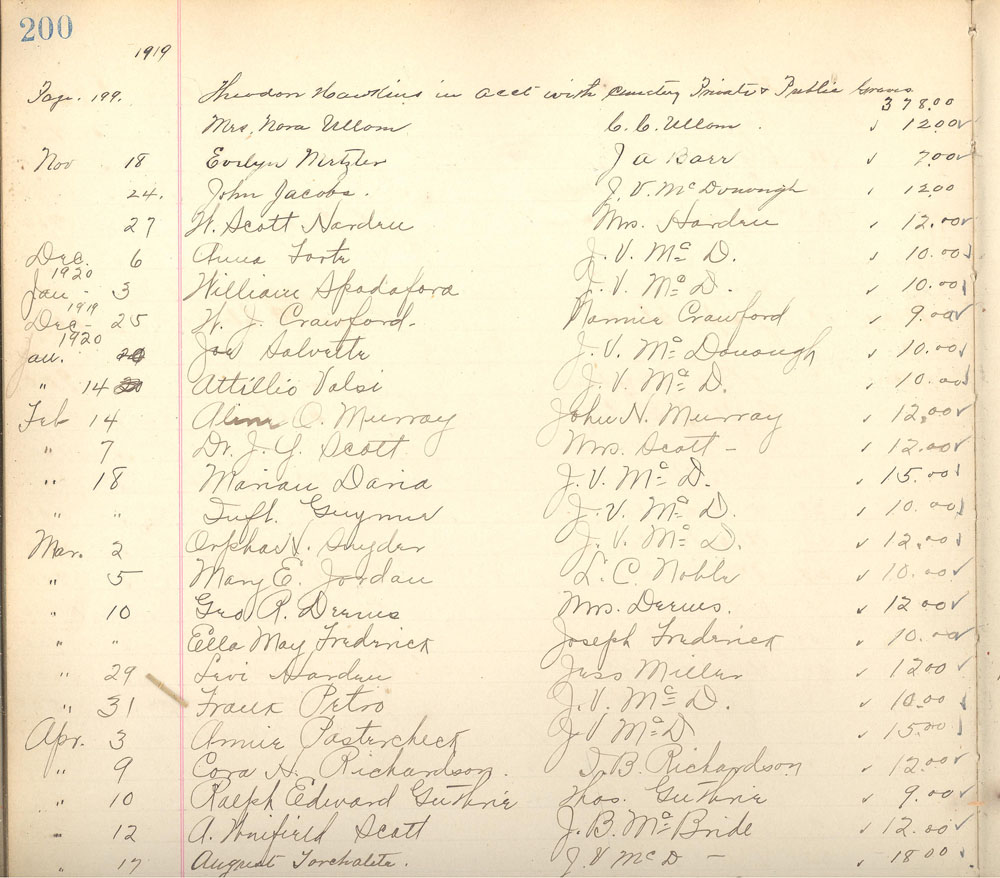 200
1919
Page. 199. Theodon Hawkins in acct with Cemetery Private & Public Graves
378.00
Mrs. Nora Ullom C. C. Ullom. ✓ 12.00✓
Nov 18 Evelyn Metzler J A Barr ✓ 7.00✓
24. John Jacobs. J. V. McDonough ✓ 12.00
27 W. Scott Harden Mrs. Harden ✓ 12.00✓
Dec. 6 Anna J. V. Mc D. ✓ 10.00✓
1920
Jan - 3 William Spadafora J. V. Mc D. ✓ 10.00✓
1919
Dec - 25 W. J. Crawford. Nannie Crawford ✓ 9.00✓
1920
Jan. Joe Salvette J. V. McDonough ✓ 10.00✓
" 14 Attillio Valsi J. V. Mc D. ✓ 10.00✓
Feb 14 O. Murray John N. Murray ✓ 12.00✓
" 7 Dr. J. Y. Scott Mrs. Scott - ✓ 12.00✓
" 18 Marian Daria J. V. Mc D. ✓ 15.00✓
" " Inft. Guymer J. V. Mc D. ✓ 10.00✓
Mar. 2 Orpha V. Snyder J. V. Mc D. ✓ 12.00✓
" 5 Mary E. Jordan L. C. Noble ✓ 10.00✓
" 10 Geo R. Derns Mrs. Derns. ✓ 12 00✓
" " Ella May Frederick Joseph Frederick ✓ 10.00✓
" 29 Levi Harden Jess Miller ✓ 12 00 ✓
" 31 Frank Petro J. V. Mc D. ✓ 10.00 ✓
Apr. 3 Annie Pastercheck J V Mc D ✓ 15.00✓
" 9 Cora H. Richardson. B. Richardson ✓ 12.00✓
" 10 Ralph Edward Guthrie Thos. Guthrie ✓ 9.00✓
" 12 A. Winifield Scott J. B. McBride ✓ 12.00✓
" 17 August Torchalete. J. V McD - ✓ 18 00 ✓